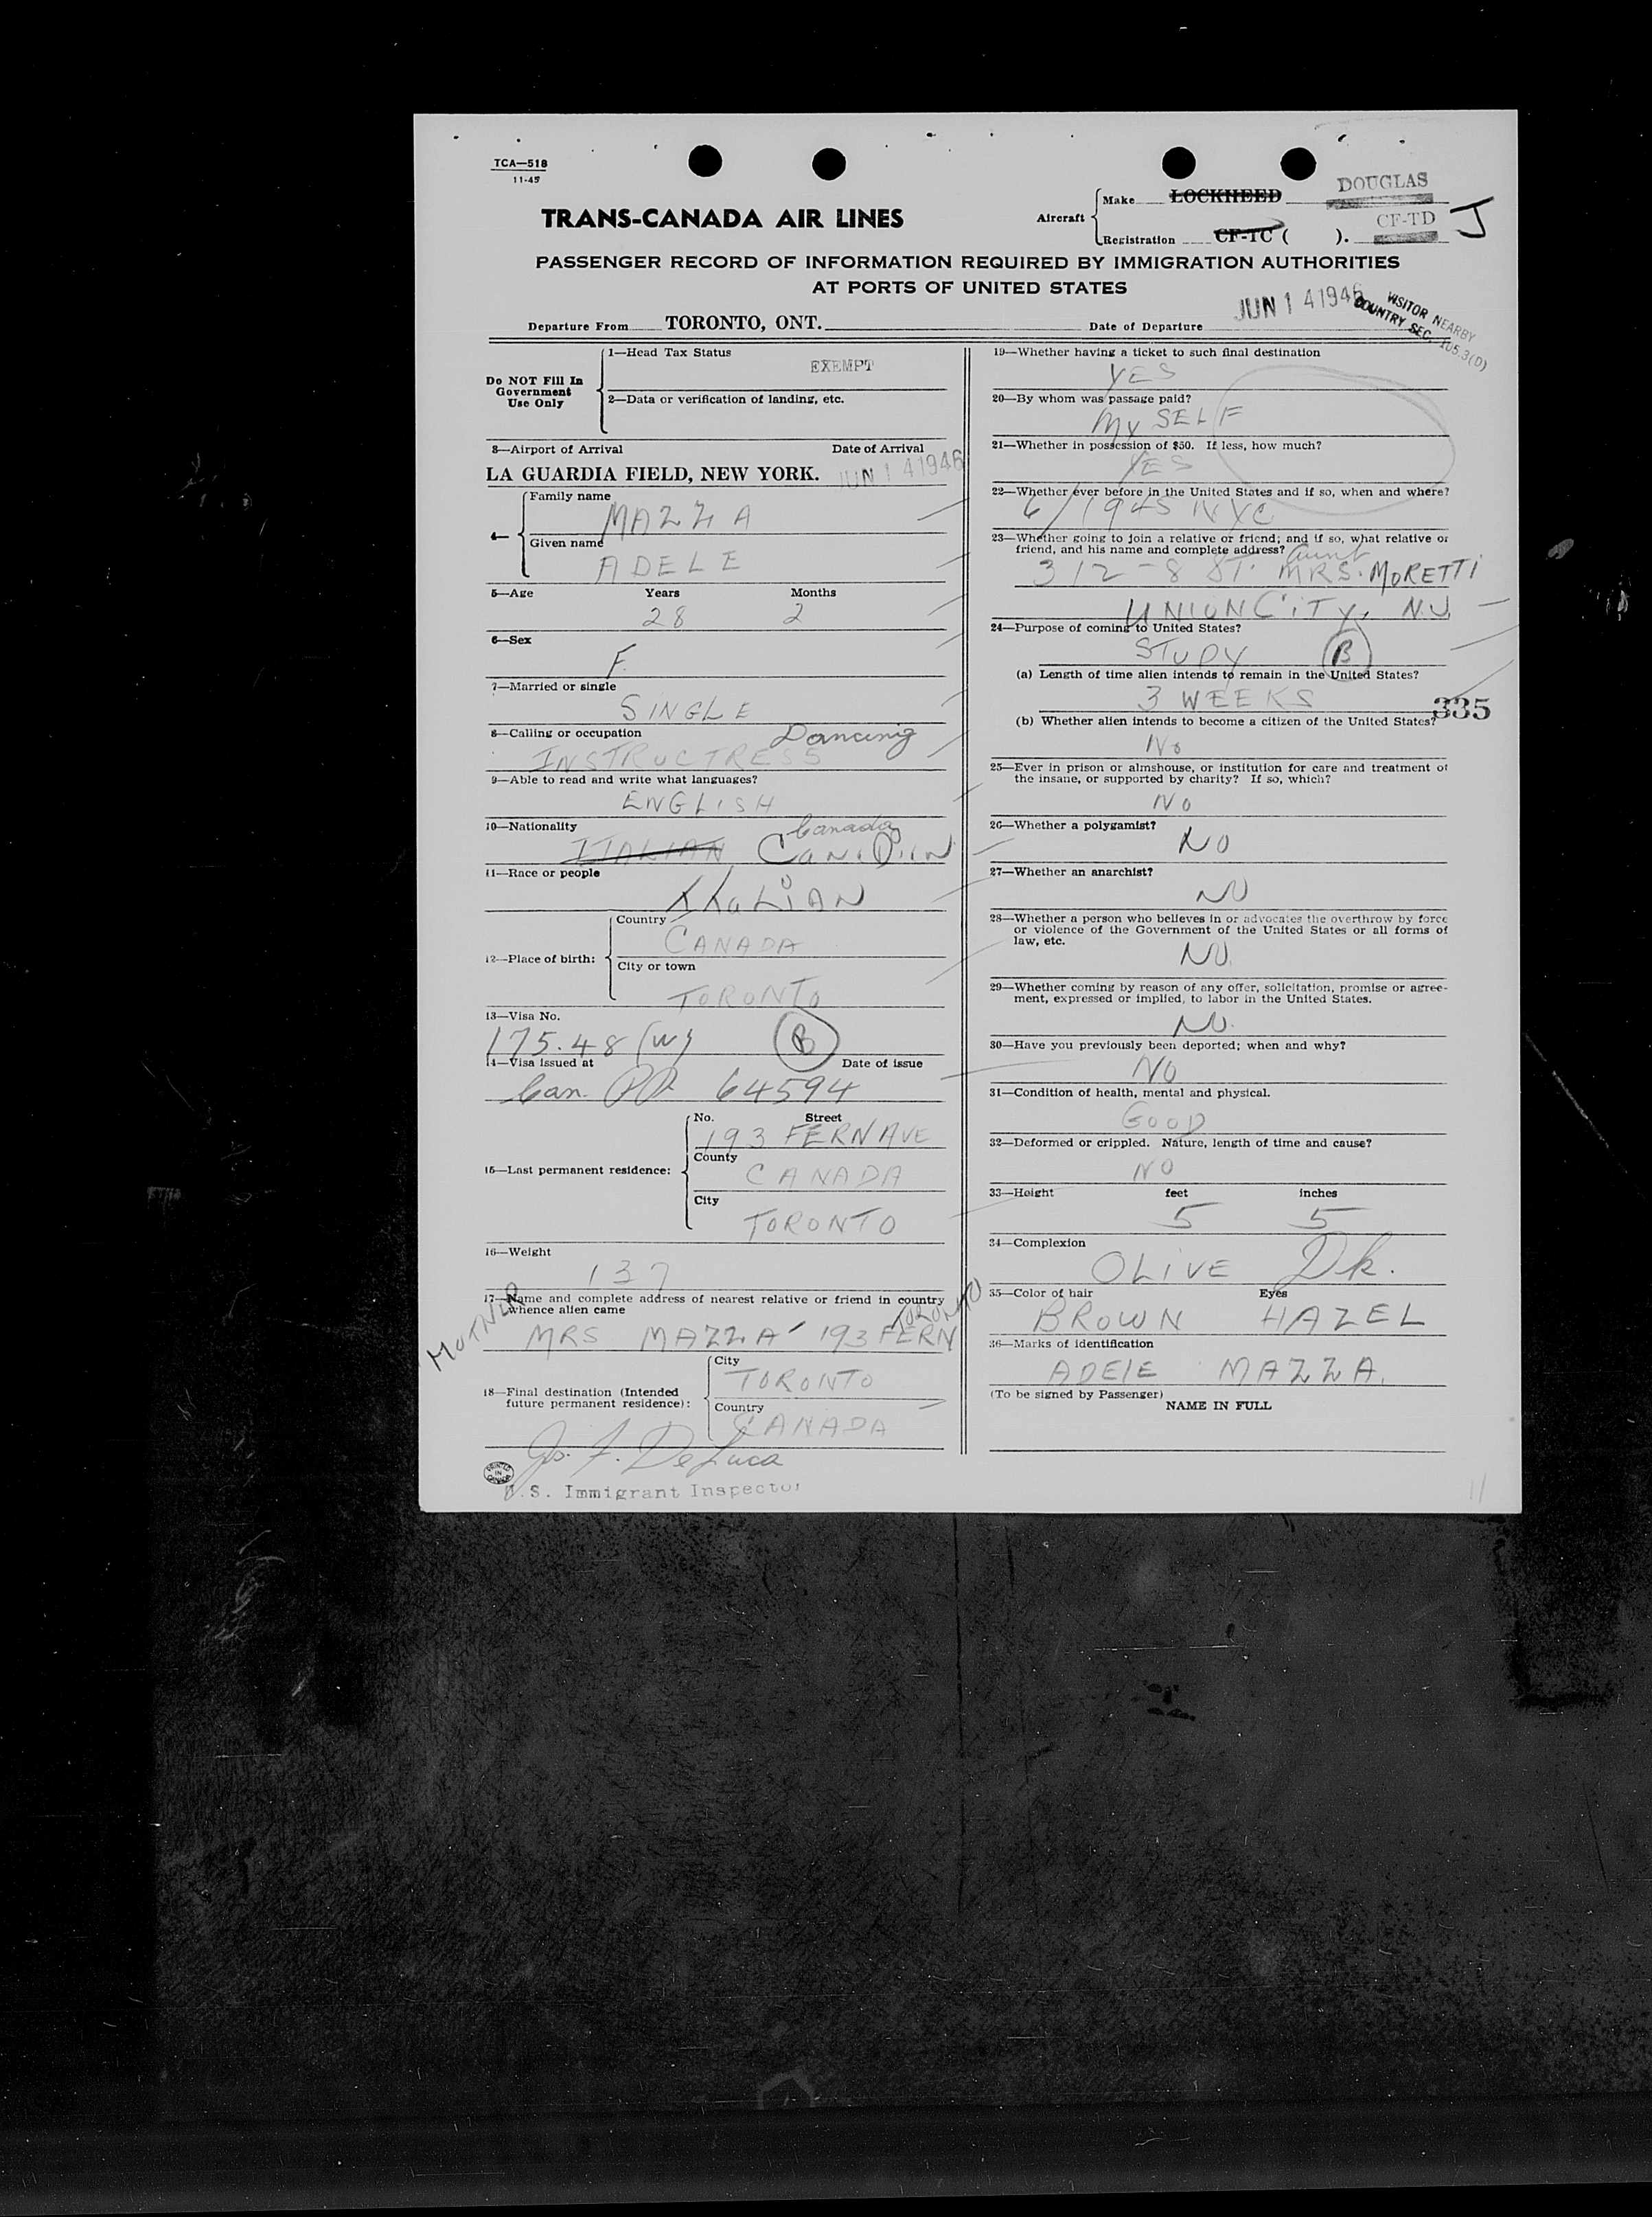 TCA—518
11-45
TRANS-CANADA AIR LINES
Aircraft
Make LOCKHEED DOUGLAS
Registration CF-TC ( ). CF-TD J
PASSENGER RECORD OF INFORMATION REQUIRED BY IMMIGRATION AUTHORITIES
AT PORTS OF UNITED STATES
Departure From TORONTO, ONT. Date of Departure JUN 14 1946
VISITOR NEARBY
COUNTRY SEC. 105.3(D)
Do NOT Fill In
Government
Use Only
1—Head Tax Status
EXEMPT
2—Data or verification of landing, etc.
3—Airport of Arrival Date of Arrival
LA GUARDIA FIELD, NEW YORK. JUN 14 1946
4—
Family name
MAZZA
Given name
ADELE
5—Age Years Months
28 2
6—Sex
F.
7—Married or single
SINGLE
8—Calling or occupation Dancing
INSTRUCTRESS
9—Able to read and write what languages?
ENGLISH
10—Nationality Canada
ITALIAN CANADIAN
11—Race or people
ITALIAN
12—Place of birth:
Country
CANADA
City or town
TORONTO
13—Visa No.
175.48 (W) B
14—Visa issued at Date of issue
Can. PP 64594
15—Last permanent residence:
No. Street
193 FERN AVE
County
CANADA
City
TORONTO
16—Weight
137
17—Name and complete address of nearest relative or friend in country
whence alien came
MOTHER MRS MAZZA 193 FERN TORONTO
18—Final destination (Intended
future permanent residence):
City
TORONTO
Country
CANADA
Jos. F. DeLuca
U.S. Immigrant Inspector
PRINTED IN CANADA
19—Whether having a ticket to such final destination
YES
20—By whom was passage paid?
MYSELF
21—Whether in possession of $50. If less, how much?
YES
22—Whether ever before in the United States and if so, when and where?
6/1945 NYC
23—Whether going to join a relative or friend; and if so, what relative or
friend, and his name and complete address? Aunt
312-8 ST. MRS. MORETTI
UNION CITY, N.J.
24—Purpose of coming to United States?
STUDY B
(a) Length of time alien intends to remain in the United States?
3 WEEKS
335
(b) Whether alien intends to become a citizen of the United States?
No
25—Ever in prison or almshouse, or institution for care and treatment of
the insane, or supported by charity? If so, which?
NO
26—Whether a polygamist?
NO
27—Whether an anarchist?
NO
28—Whether a person who believes in or advocates the overthrow by force
or violence of the Government of the United States or all forms of
law, etc.
NO.
29—Whether coming by reason of any offer, solicitation, promise or agree-
ment, expressed or implied, to labor in the United States.
NO.
30—Have you previously been deported; when and why?
NO
31—Condition of health, mental and physical.
GOOD
32—Deformed or crippled. Nature, length of time and cause?
NO
33—Height feet inches
5 5
34—Complexion
OLIVE Dk.
35—Color of hair Eyes
BROWN HAZEL
36—Marks of identification
ADELE MAZZA.
(To be signed by Passenger)
NAME IN FULL
11